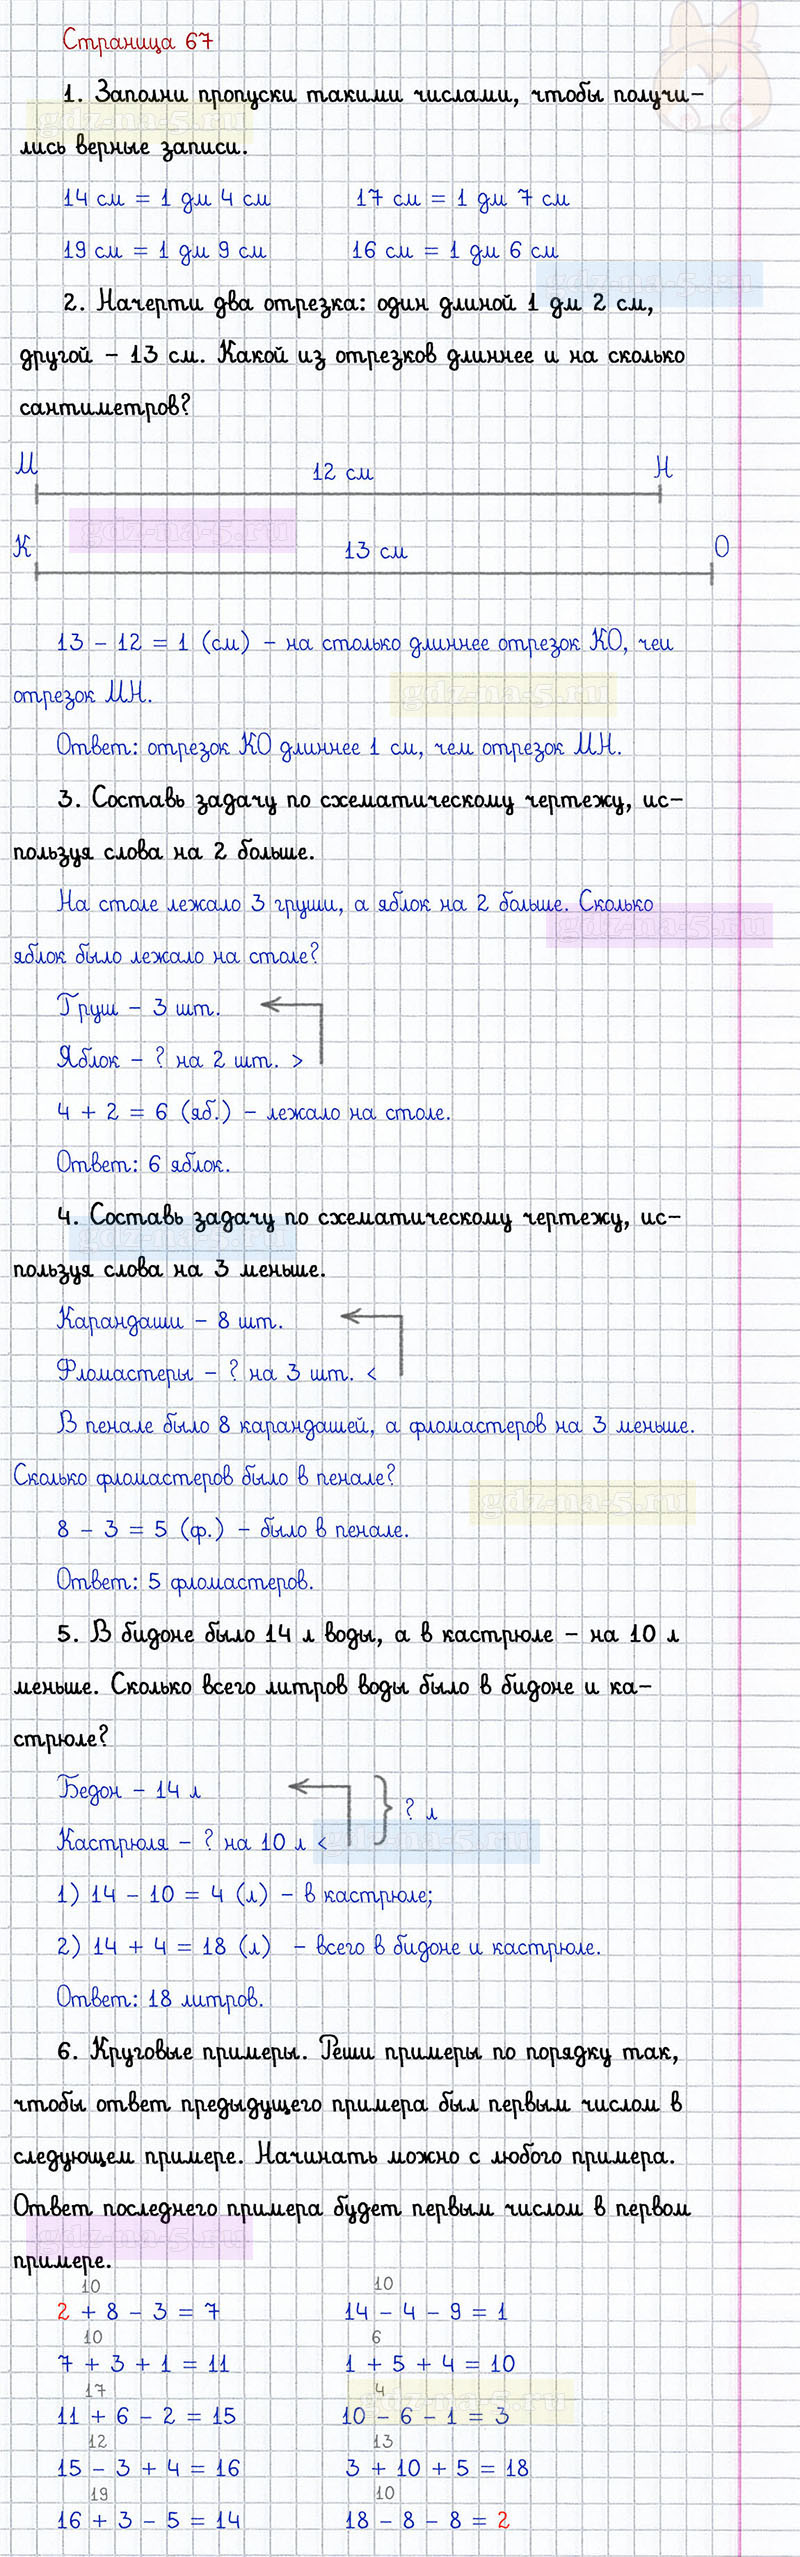 Страница 67
1. Заполни пропуски такими числами, чтобы получи-
gdz-na-5.ru
лись верные записи.
14 см = 1 дм 4 см 17 см = 1 дм 7 см
19 см = 1 дм 9 см 16 см = 1 дм 6 см
gdz-na-5.ru
2. Начерти два отрезка: один длиной 1 дм 2 см,
другой - 13 см. Какой из отрезков длиннее и на сколько
сантиметров?
М 12 см Н
gdz-na-5.ru
К 13 см О
13 - 12 = 1 (см) - на столько длиннее отрезок КО, чем
отрезок МН.
gdz-na-5.ru
Ответ: отрезок КО длиннее 1 см, чем отрезок МН.
3. Составь задачу по схематическому чертежу, ис-
пользуя слова на 2 больше.
На столе лежало 3 груши, а яблок на 2 больше. Сколько
gdz-na-5.ru
яблок было лежало на столе?
Груш - 3 шт.
Яблок - ? на 2 шт. >
4 + 2 = 6 (яб.) - лежало на столе.
Ответ: 6 яблок.
4. Составь задачу по схематическому чертежу, ис-
gdz-na-5.ru
пользуя слова на 3 меньше.
Карандаши - 8 шт.
Фломастеры - ? на 3 шт. <
В пенале было 8 карандашей, а фломастеров на 3 меньше.
Сколько фломастеров было в пенале?
gdz-na-5.ru
8 - 3 = 5 (ф.) - было в пенале.
Ответ: 5 фломастеров.
5. В бидоне было 14 л воды, а в кастрюле - на 10 л
меньше. Сколько всего литров воды было в бидоне и ка-
стрюле?
Бедон - 14 л
? л
Кастрюля - ? на 10 л <
gdz-na-5.ru
1) 14 - 10 = 4 (л) - в кастрюле;
2) 14 + 4 = 18 (л) - всего в бидоне и кастрюле.
Ответ: 18 литров.
6. Круговые примеры. Реши примеры по порядку так,
чтобы ответ предыдущего примера был первым числом в
следующем примере. Начинать можно с любого примера.
Ответ последнего примера будет первым числом в первом
gdz-na-5.ru
примере.
10 10
2 + 8 - 3 = 7 14 - 4 - 9 = 1
10 6
7 + 3 + 1 = 11 1 + 5 + 4 = 10
17 4
gdz-na-5.ru
11 + 6 - 2 = 15 10 - 6 - 1 = 3
12 13
15 - 3 + 4 = 16 3 + 10 + 5 = 18
19 10
16 + 3 - 5 = 14 18 - 8 - 8 = 2